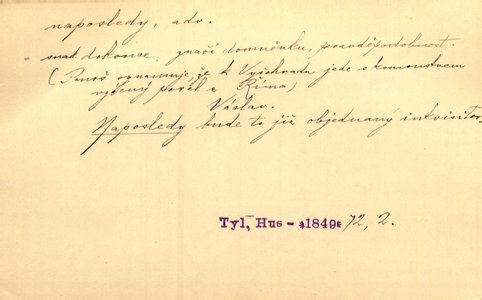 naposledy, adv.
snad dokonce; značí domněnku, pravděpodobnost.
(Panoš oznamuje, že k Vyšehradu jede s komonstvem
vyslaný posel z Říma)
Václav.
Naposledy bude to již objednaný inkvisitor.
Tyl, Hus - *1849* 72, 2.